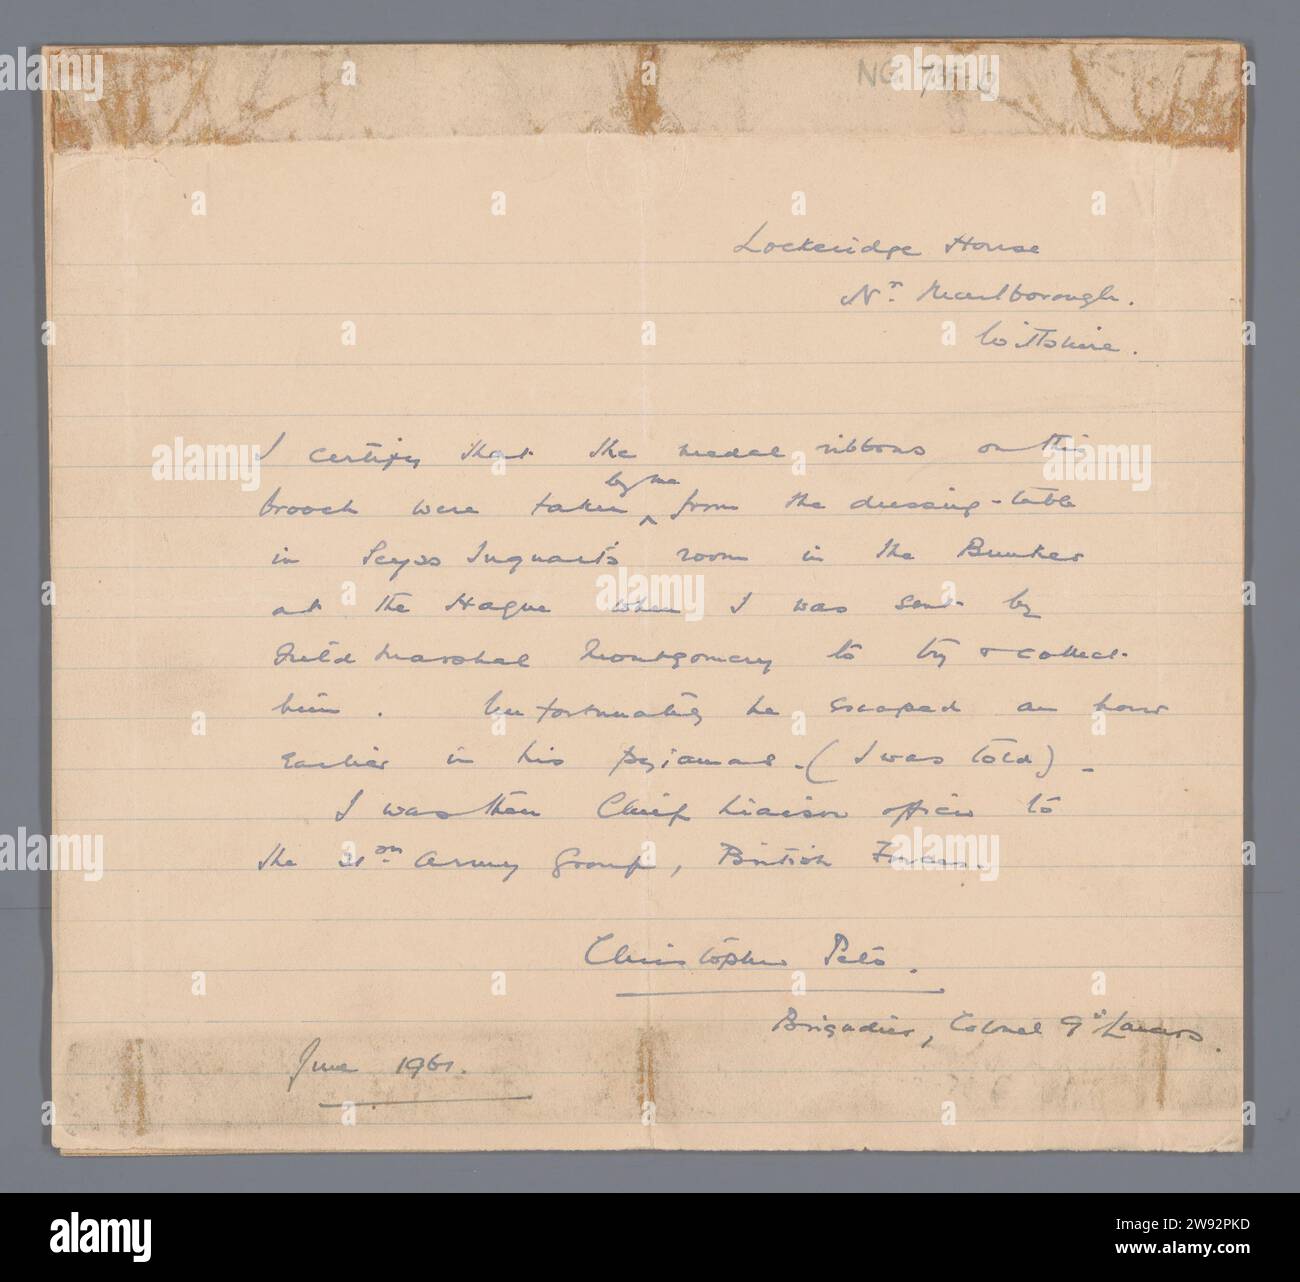 NG 735-0
Lockeridge House
Nr. Marlborough.
Wiltshire.
I certify that the medal ribbons on this
brooch were taken by me from the dressing-table
in Seyss Inquart's room in the Bunker
at the Hague when I was sent by
Field Marshal Montgomery to try & collect
him. Unfortunately he escaped an hour
earlier in his pyjamas. (I was told).
I was then Chief Liaison officer to
the 21st Army Group, British Forces.
Christopher Peto.
Brigadier, Colonel 9th Lancers.
June 1961.
alamy
Image ID: 2W92PKD
www.alamy.com